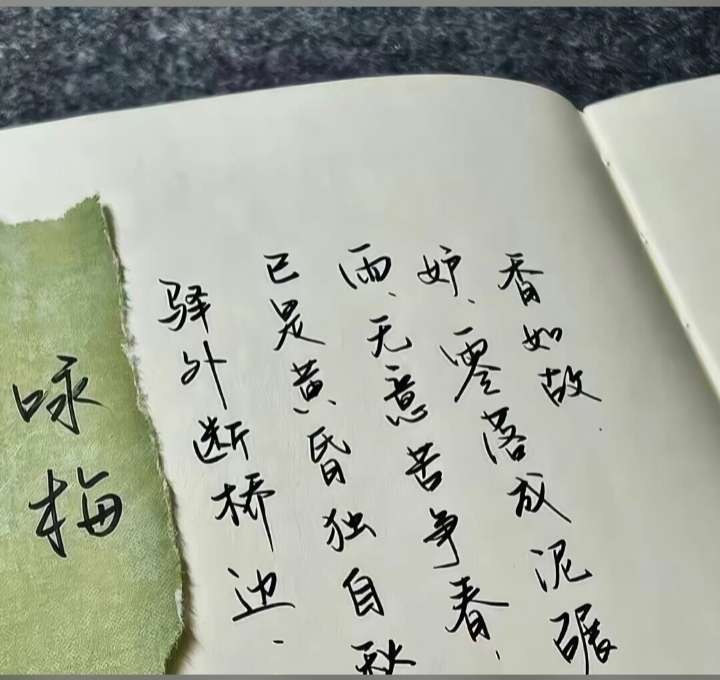 咏梅
驿外断桥边、
已是黄昏独自
雨、无意苦争春、
妒、零落成泥碾
香如故.